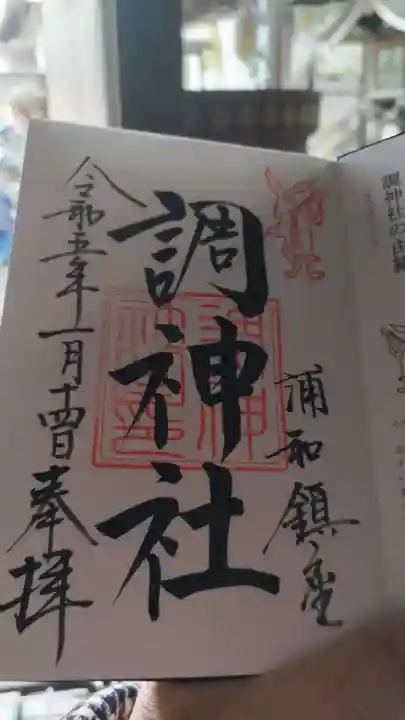 調神社の由緒
浦和鎮座
調神社
令和五年一月十四日奉拝